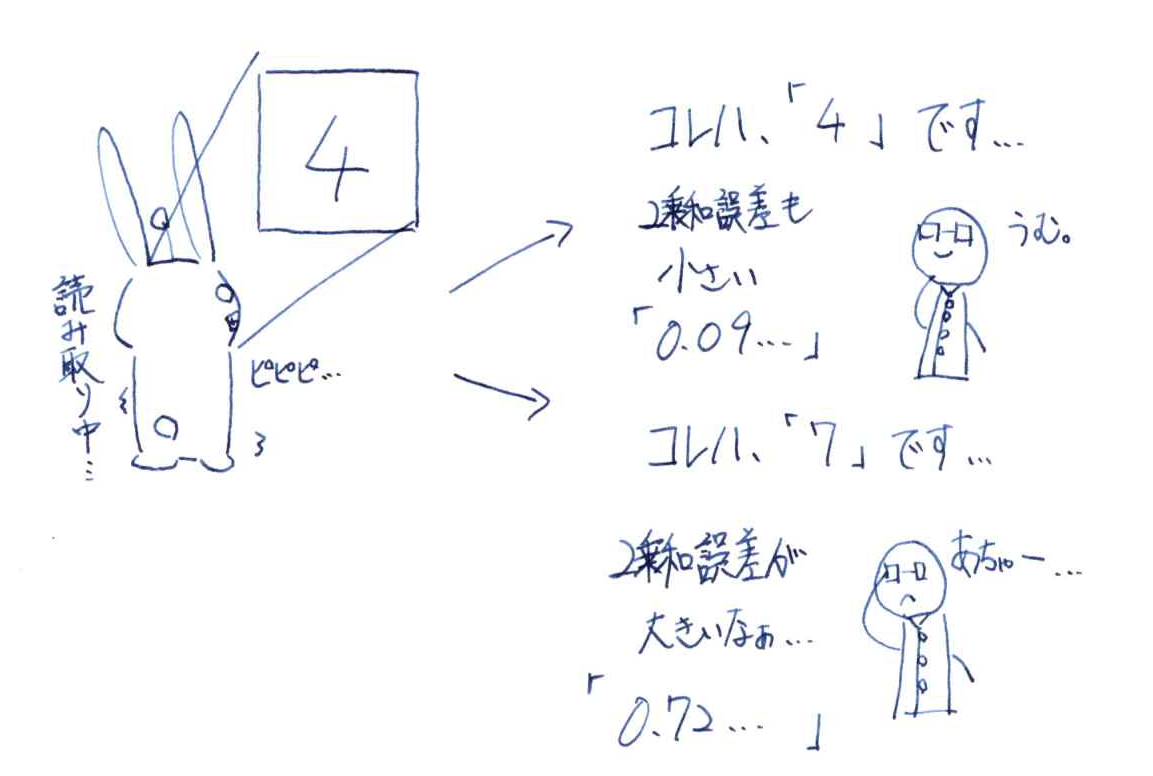 4
読み取り中…
ピピピ…
コレハ、「4」です…
2乗和誤差も
小さい
「0.09…」
うむ。
コレハ、「7」です…
2乗和誤差が
大きいなぁ…
「0.72…」
あちゃー…